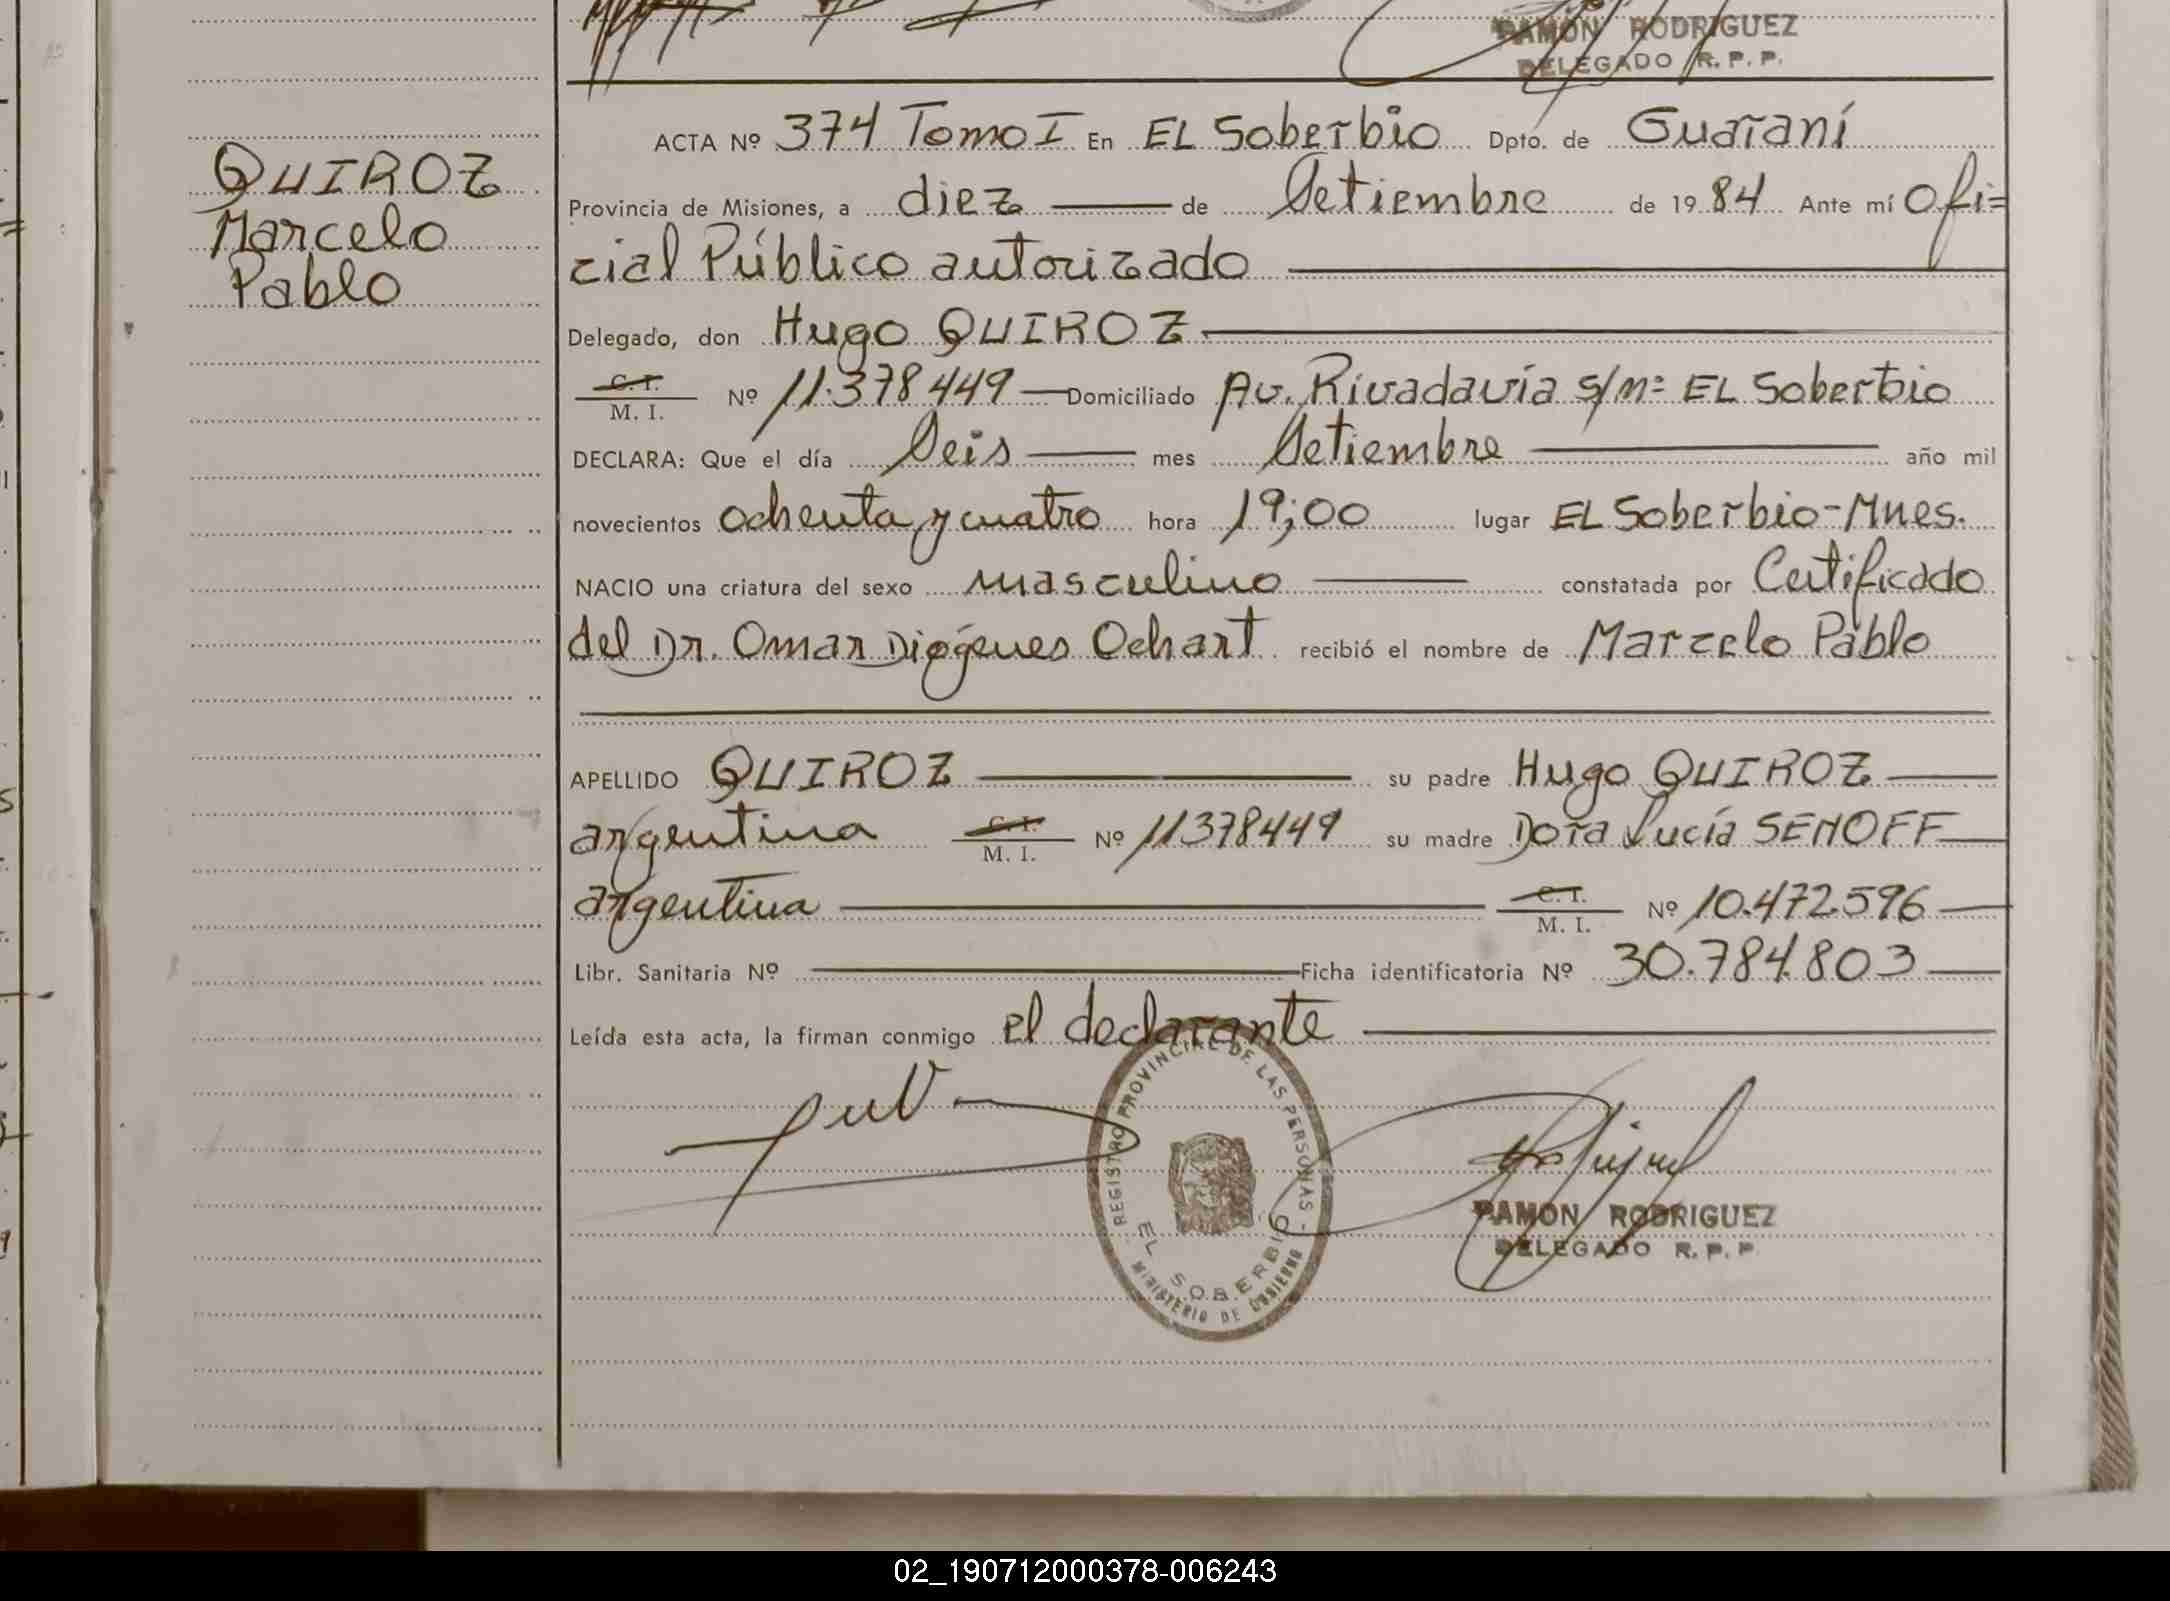 RAMON RODRIGUEZ
DELEGADO R. P. P.
QUIROZ
Marcelo
Pablo
ACTA Nº 374 Tomo I En EL Soberbio Dpto. de Guaraní
Provincia de Misiones, a diez de Setiembre de 1984 Ante mí Ofi=
cial Público autorizado
Delegado, don Hugo QUIROZ
C. I.
M. I. Nº 11.378449 Domiciliado Av. Rivadavia s/nº EL Soberbio
DECLARA: Que el día Seis mes Setiembre año mil
novecientos ochenta y cuatro hora 19;00 lugar EL Soberbio-Mnes.
NACIO una criatura del sexo masculino constatada por Certificado
del Dr. Omar Diógenes Ochart recibió el nombre de Marcelo Pablo
APELLIDO QUIROZ su padre Hugo QUIROZ
argentina C. I. M. I. Nº 11378449 su madre Dora Lucía SENOFF
argentina C. I. M. I. Nº 10.472.596
Libr. Sanitaria Nº Ficha identificatoria Nº 30.784.803
Leída esta acta, la firman conmigo el declarante
REGISTRO PROVINCIAL DE LAS PERSONAS -
EL SOBERBIO
MINISTERIO DE GOBIERNO
RAMON RODRIGUEZ
DELEGADO R. P. P.
02_190712000378-006243